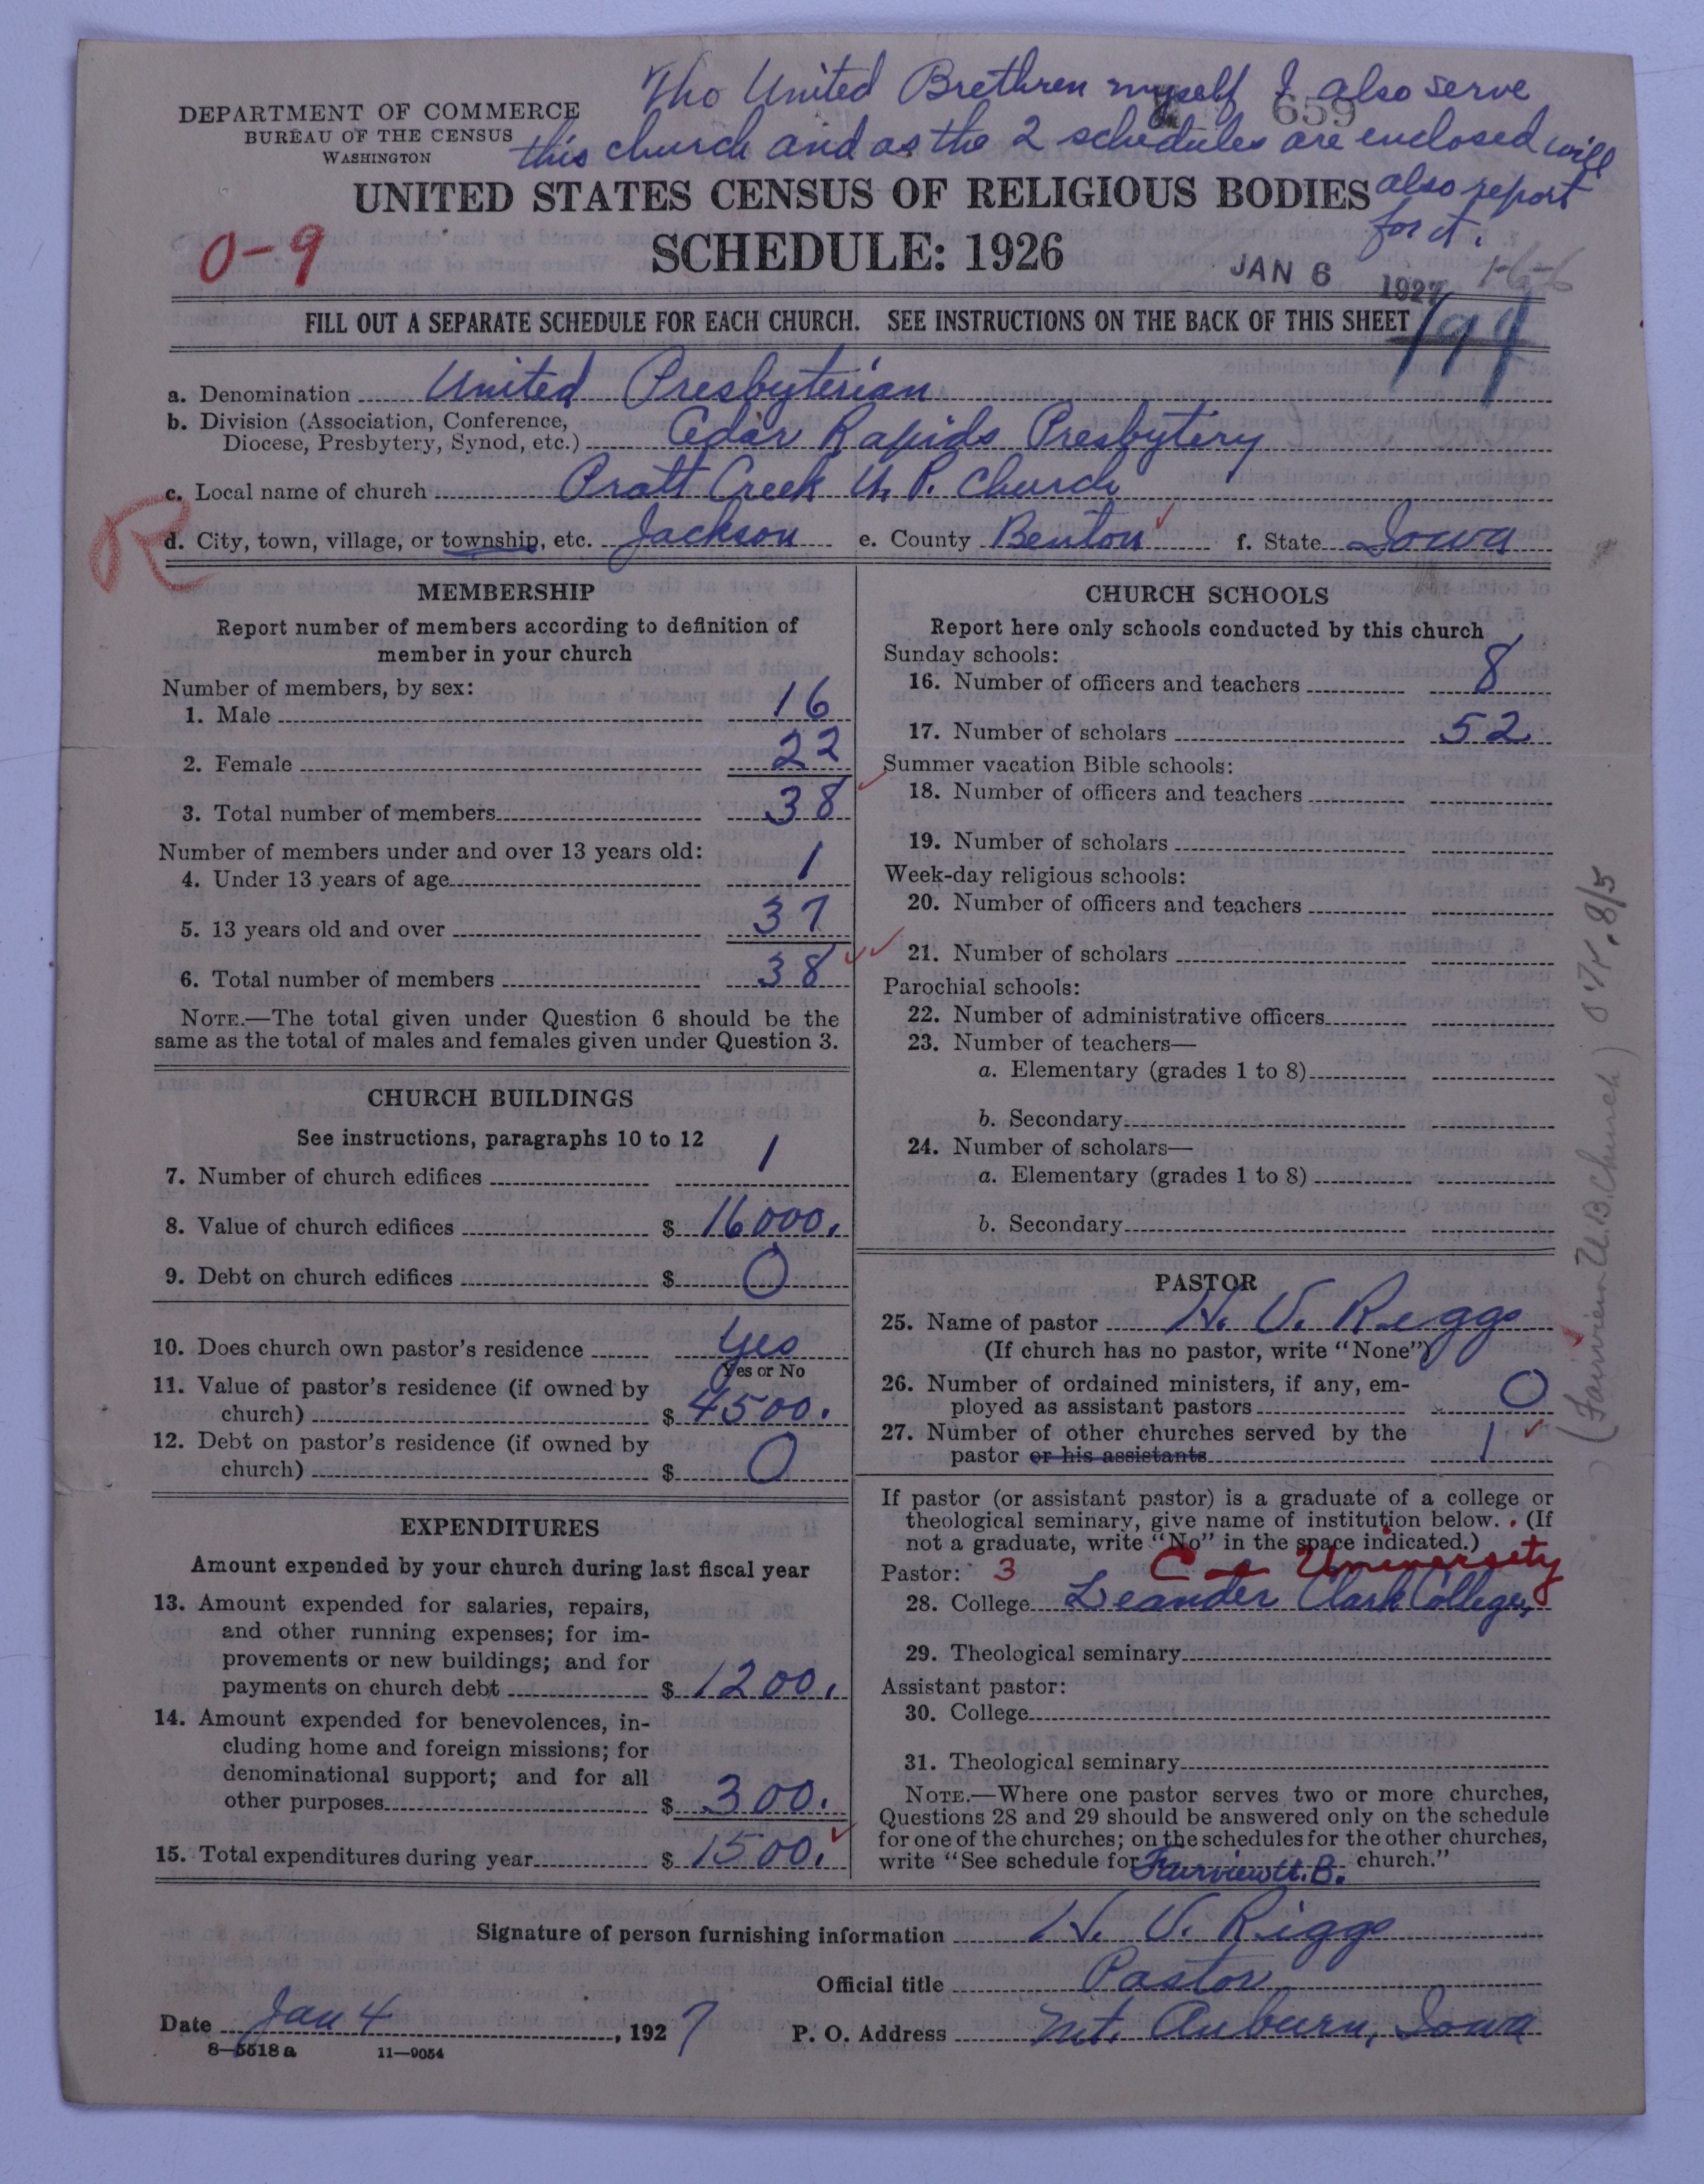 Tho United Brethren myself I also serve
659
this church and as the 2 schedules are enclosed will
also report
for it.
DEPARTMENT OF COMMERCE
BUREAU OF THE CENSUS
WASHINGTON
UNITED STATES CENSUS OF RELIGIOUS BODIES
SCHEDULE: 1926
0-9
JAN 6 1927
FILL OUT A SEPARATE SCHEDULE FOR EACH CHURCH. SEE INSTRUCTIONS ON THE BACK OF THIS SHEET
a. Denomination United Presbyterian
b. Division (Association, Conference,
Diocese, Presbytery, Synod, etc.) Cedar Rapids Presbytery
c. Local name of church Pratt Creek U. P. Church
R
d. City, town, village, or township, etc. Jackson e. County Benton f. State Iowa
MEMBERSHIP
Report number of members according to definition of
member in your church
Number of members, by sex:
1. Male 16
2. Female 22
3. Total number of members 38
Number of members under and over 13 years old:
4. Under 13 years of age 1
5. 13 years old and over 37
6. Total number of members 38
NOTE.—The total given under Question 6 should be the
same as the total of males and females given under Question 3.
CHURCH BUILDINGS
See instructions, paragraphs 10 to 12
7. Number of church edifices 1
8. Value of church edifices $ 16000.
9. Debt on church edifices $ 0
10. Does church own pastor's residence yes
Yes or No
11. Value of pastor's residence (if owned by
church) $ 4500.
12. Debt on pastor's residence (if owned by
church) $ 0
EXPENDITURES
Amount expended by your church during last fiscal year
13. Amount expended for salaries, repairs,
and other running expenses; for im-
provements or new buildings; and for
payments on church debt $ 1200.
14. Amount expended for benevolences, in-
cluding home and foreign missions; for
denominational support; and for all
other purposes $ 300.
15. Total expenditures during year $ 1500.
CHURCH SCHOOLS
Report here only schools conducted by this church
Sunday schools:
16. Number of officers and teachers 8
17. Number of scholars 52
Summer vacation Bible schools:
18. Number of officers and teachers
19. Number of scholars
Week-day religious schools:
20. Number of officers and teachers
21. Number of scholars
Parochial schools:
22. Number of administrative officers
23. Number of teachers—
a. Elementary (grades 1 to 8)
b. Secondary
24. Number of scholars—
a. Elementary (grades 1 to 8)
b. Secondary
PASTOR
25. Name of pastor H. V. Riggs
(If church has no pastor, write "None")
26. Number of ordained ministers, if any, em-
ployed as assistant pastors 0
27. Number of other churches served by the
pastor or his assistants 1
If pastor (or assistant pastor) is a graduate of a college or
theological seminary, give name of institution below. (If
not a graduate, write "No" in the space indicated.)
Pastor: 3 C University
28. College Leander Clark College,
29. Theological seminary
Assistant pastor:
30. College
31. Theological seminary
NOTE.—Where one pastor serves two or more churches,
Questions 28 and 29 should be answered only on the schedule
for one of the churches; on the schedules for the other churches,
write "See schedule for Fairview U. B. church."
(Fairview U. B. Church)
Signature of person furnishing information H. V. Riggs
Official title Pastor
Date Jan 4, 1927 P. O. Address Mt. Auburn, Iowa
8—5518 a 11—9054